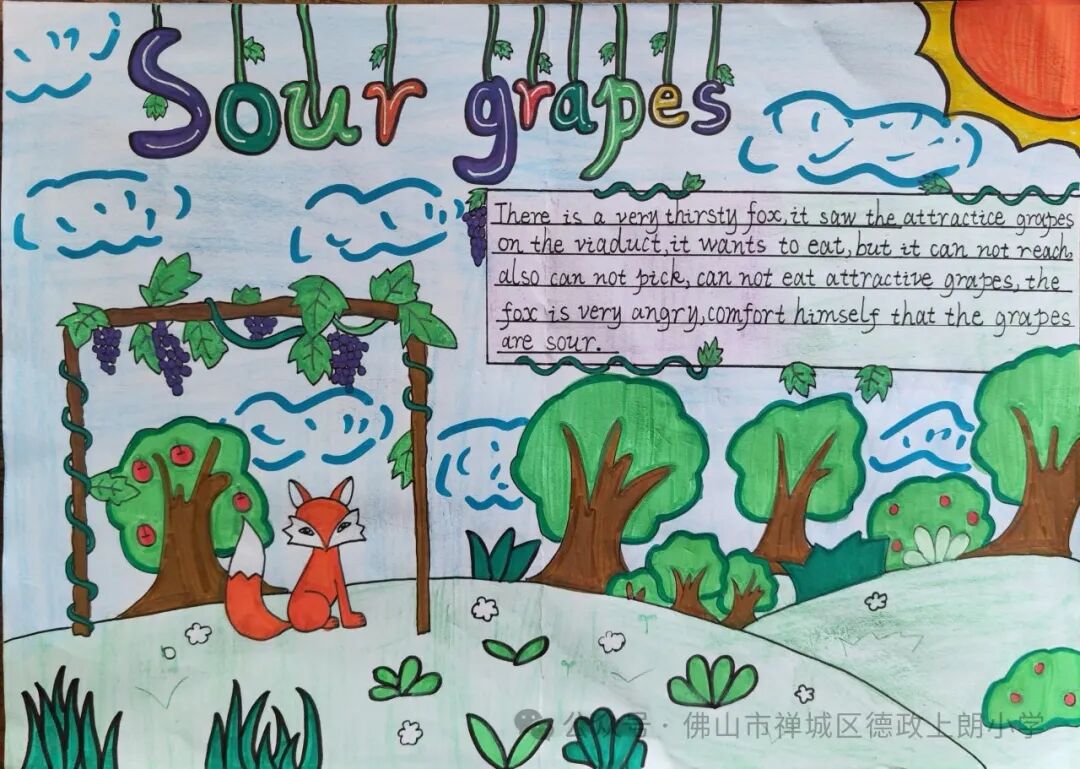 Sour grapes
There is a very thirsty fox, it saw the attractice grapes
on the viaduct, it wants to eat, but it can not reach,
also can not pick, can not eat attractive grapes, the
fox is very angry, comfort himself that the grapes
are sour.
公众号 · 佛山市禅城区德政上朗小学